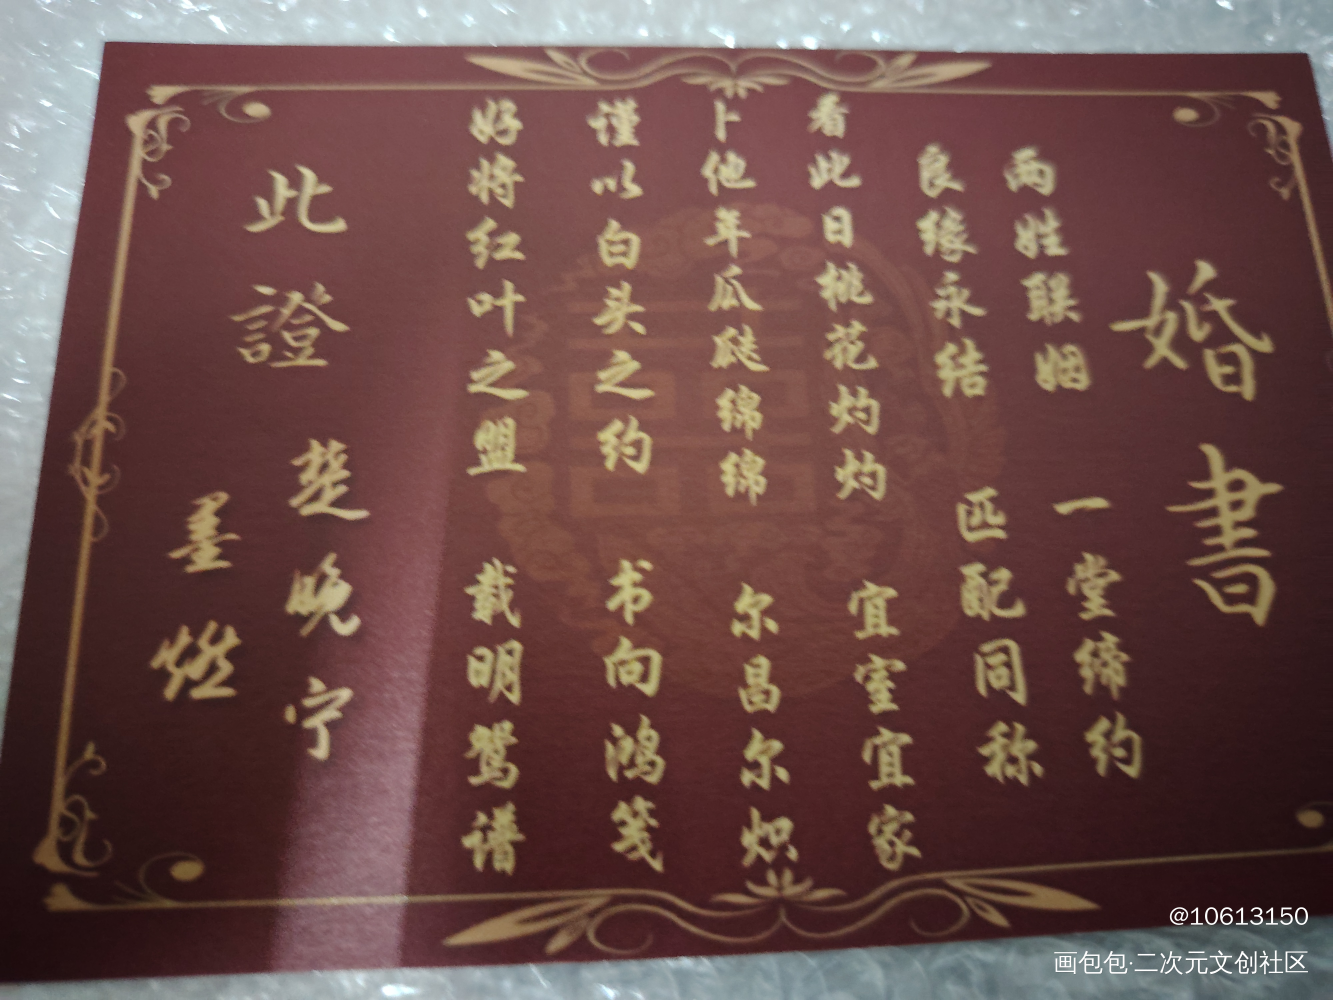 婚書
两姓联姻 一堂缔约
良缘永结 匹配同称
看此日桃花灼灼 宜室宜家
卜他年瓜瓞绵绵 尔昌尔炽
谨以白头之约 书向鸿笺
好将红叶之盟 载明鸳谱
此證
楚晚宁
墨燃
@10613150
画包包·二次元文创社区